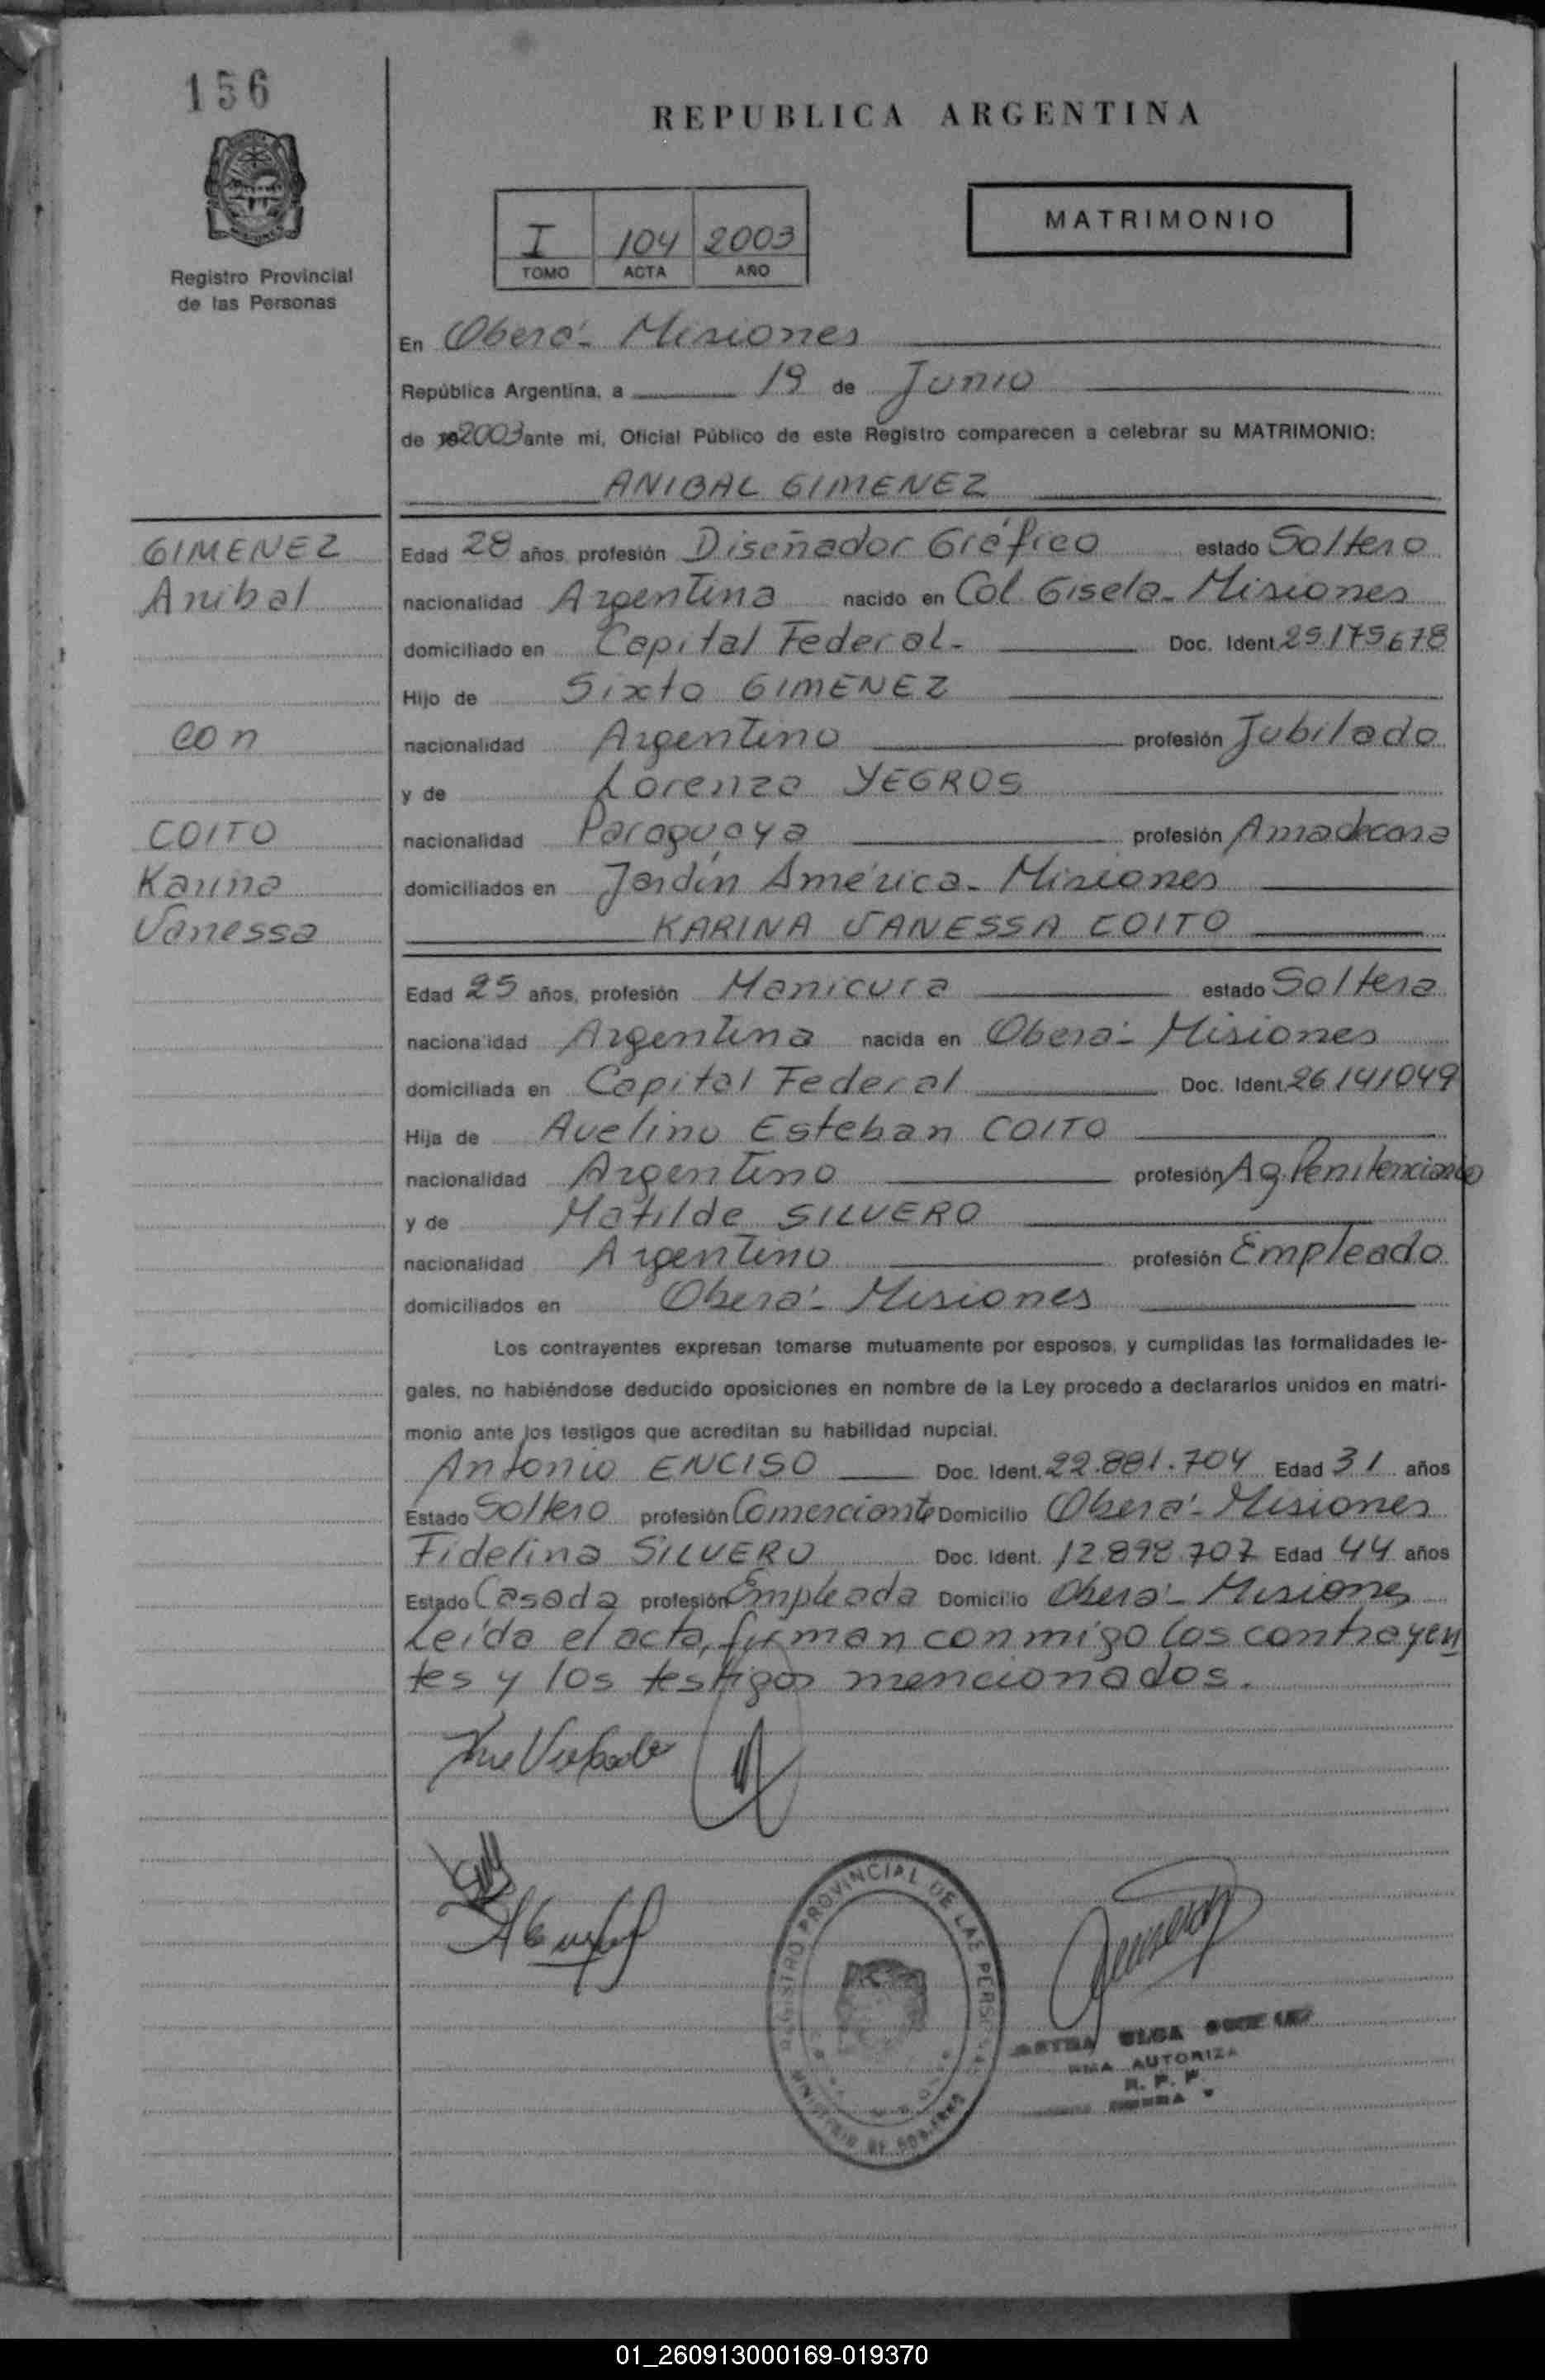 156
REPUBLICA ARGENTINA
MATRIMONIO
I 104 2003
TOMO ACTA AÑO
Registro Provincial
de las Personas
En Oberá - Misiones
República Argentina, a 19 de Junio
de 2003 ante mi, Oficial Público de este Registro comparecen a celebrar su MATRIMONIO:
ANIBAL GIMENEZ
GIMENEZ
Anibal
con
COITO
Karina
Vanessa
Edad 28 años, profesión Diseñador Gráfico estado Soltero
nacionalidad Argentina nacido en Col. Gisela - Misiones
domiciliado en Capital Federal - Doc. Ident. 25.175.678
Hijo de Sixto GIMENEZ
nacionalidad Argentino profesión Jubilado
y de Lorenza YEGROS
nacionalidad Paraguaya profesión Amadecasa
domiciliados en Jardín América - Misiones
KARINA VANESSA COITO
Edad 25 años, profesión Manicura estado Soltera
nacionalidad Argentina nacida en Oberá - Misiones
domiciliada en Capital Federal Doc. Ident. 26.141049
Hija de Avelino Esteban COITO
nacionalidad Argentino profesión Ag. Penitenciario
y de Matilde SILVERO
nacionalidad Argentino profesión Empleado
domiciliados en Oberá - Misiones
Los contrayentes expresan tomarse mutuamente por esposos, y cumplidas las formalidades le-
gales, no habiéndose deducido oposiciones en nombre de la Ley procedo a declararlos unidos en matri-
monio ante los testigos que acreditan su habilidad nupcial.
Antonio ENCISO Doc. Ident. 22.881.704 Edad 31 años
Estado Soltero profesión Comerciante Domicilio Oberá - Misiones
Fidelina SILVERO Doc. Ident. 12.898.707 Edad 44 años
Estado Casada profesión Empleada Domicilio Oberá - Misiones
Leída el acta, firman conmigo los contrayen
tes y los testigos mencionados.
REGISTRO PROVINCIAL DE LAS PERSONAS
MINISTERIO DE GOBIERNO
OLGA
AUTORIZA
01_260913000169-019370